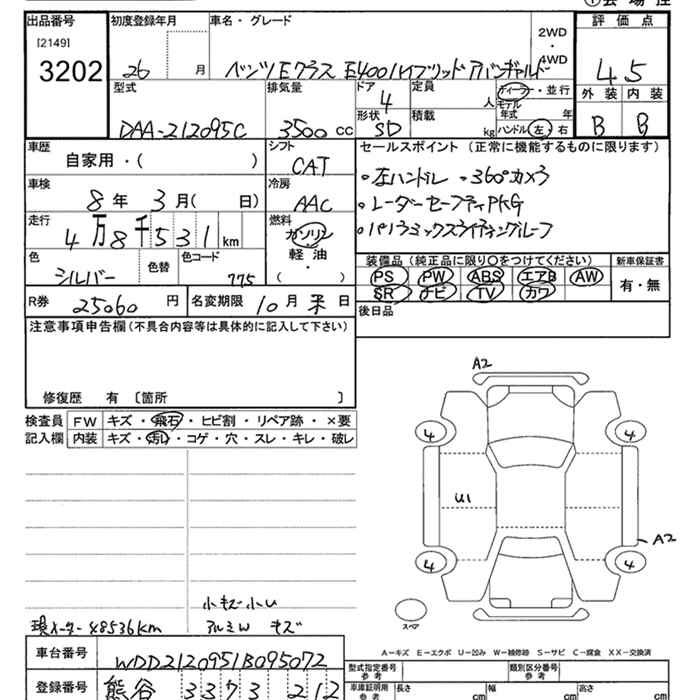 出品番号 初度登録年月 車名・グレード 評価点
[2149]
3202
26 月 ベンツEクラス E400ハイブリッドアバンギャルド 2WD・4WD 4.5
型式 排気量 ドア 定員 ディーラー・並行 外装 内装
DAA-212095C 3500cc 4 人 モデル年式 年 B B
形状 積載
SD kg ハンドル 左・右
車歴 シフト セールスポイント (正常に機能するものに限ります)
自家用・( ) CAT
・左ハンドル ・360°カメラ
車検 冷房
8年 3月( 日) AAC
・レーダーセーフティPKG
走行 燃料
4万8千531km ガソリン
・パノラミックスライディングルーフ
軽油
・( )
色 色替 色コード
シルバー 775
装備品 (純正品に限り○をつけてください) 新車保証書
PS PW ABS エアB AW 有・無
SR ナビ TV カワ
R券 25060円 名変期限 10月末日
後日品
注意事項申告欄(不具合内容等は具体的に記入して下さい)
修復歴 有 〔箇所 〕
検査員 FW キズ・飛石・ヒビ割・リペア跡・×要
記入欄 内装 キズ・汚レ・コゲ・穴・スレ・キレ・破レ
A2
4 4
U1
A2
4 4
スペア
小キズ小U
現メーター48536km アルミW キズ
A－キズ E－エクボ U－凹み W－補修跡 S－サビ C－腐食 XX－交換済
車台番号 WDD2120951B095072
型式指定番号 参考 類別区分番号 参考
登録番号 熊谷 3373 212
車庫証明用 参考 長さ cm 幅 cm 高さ cm